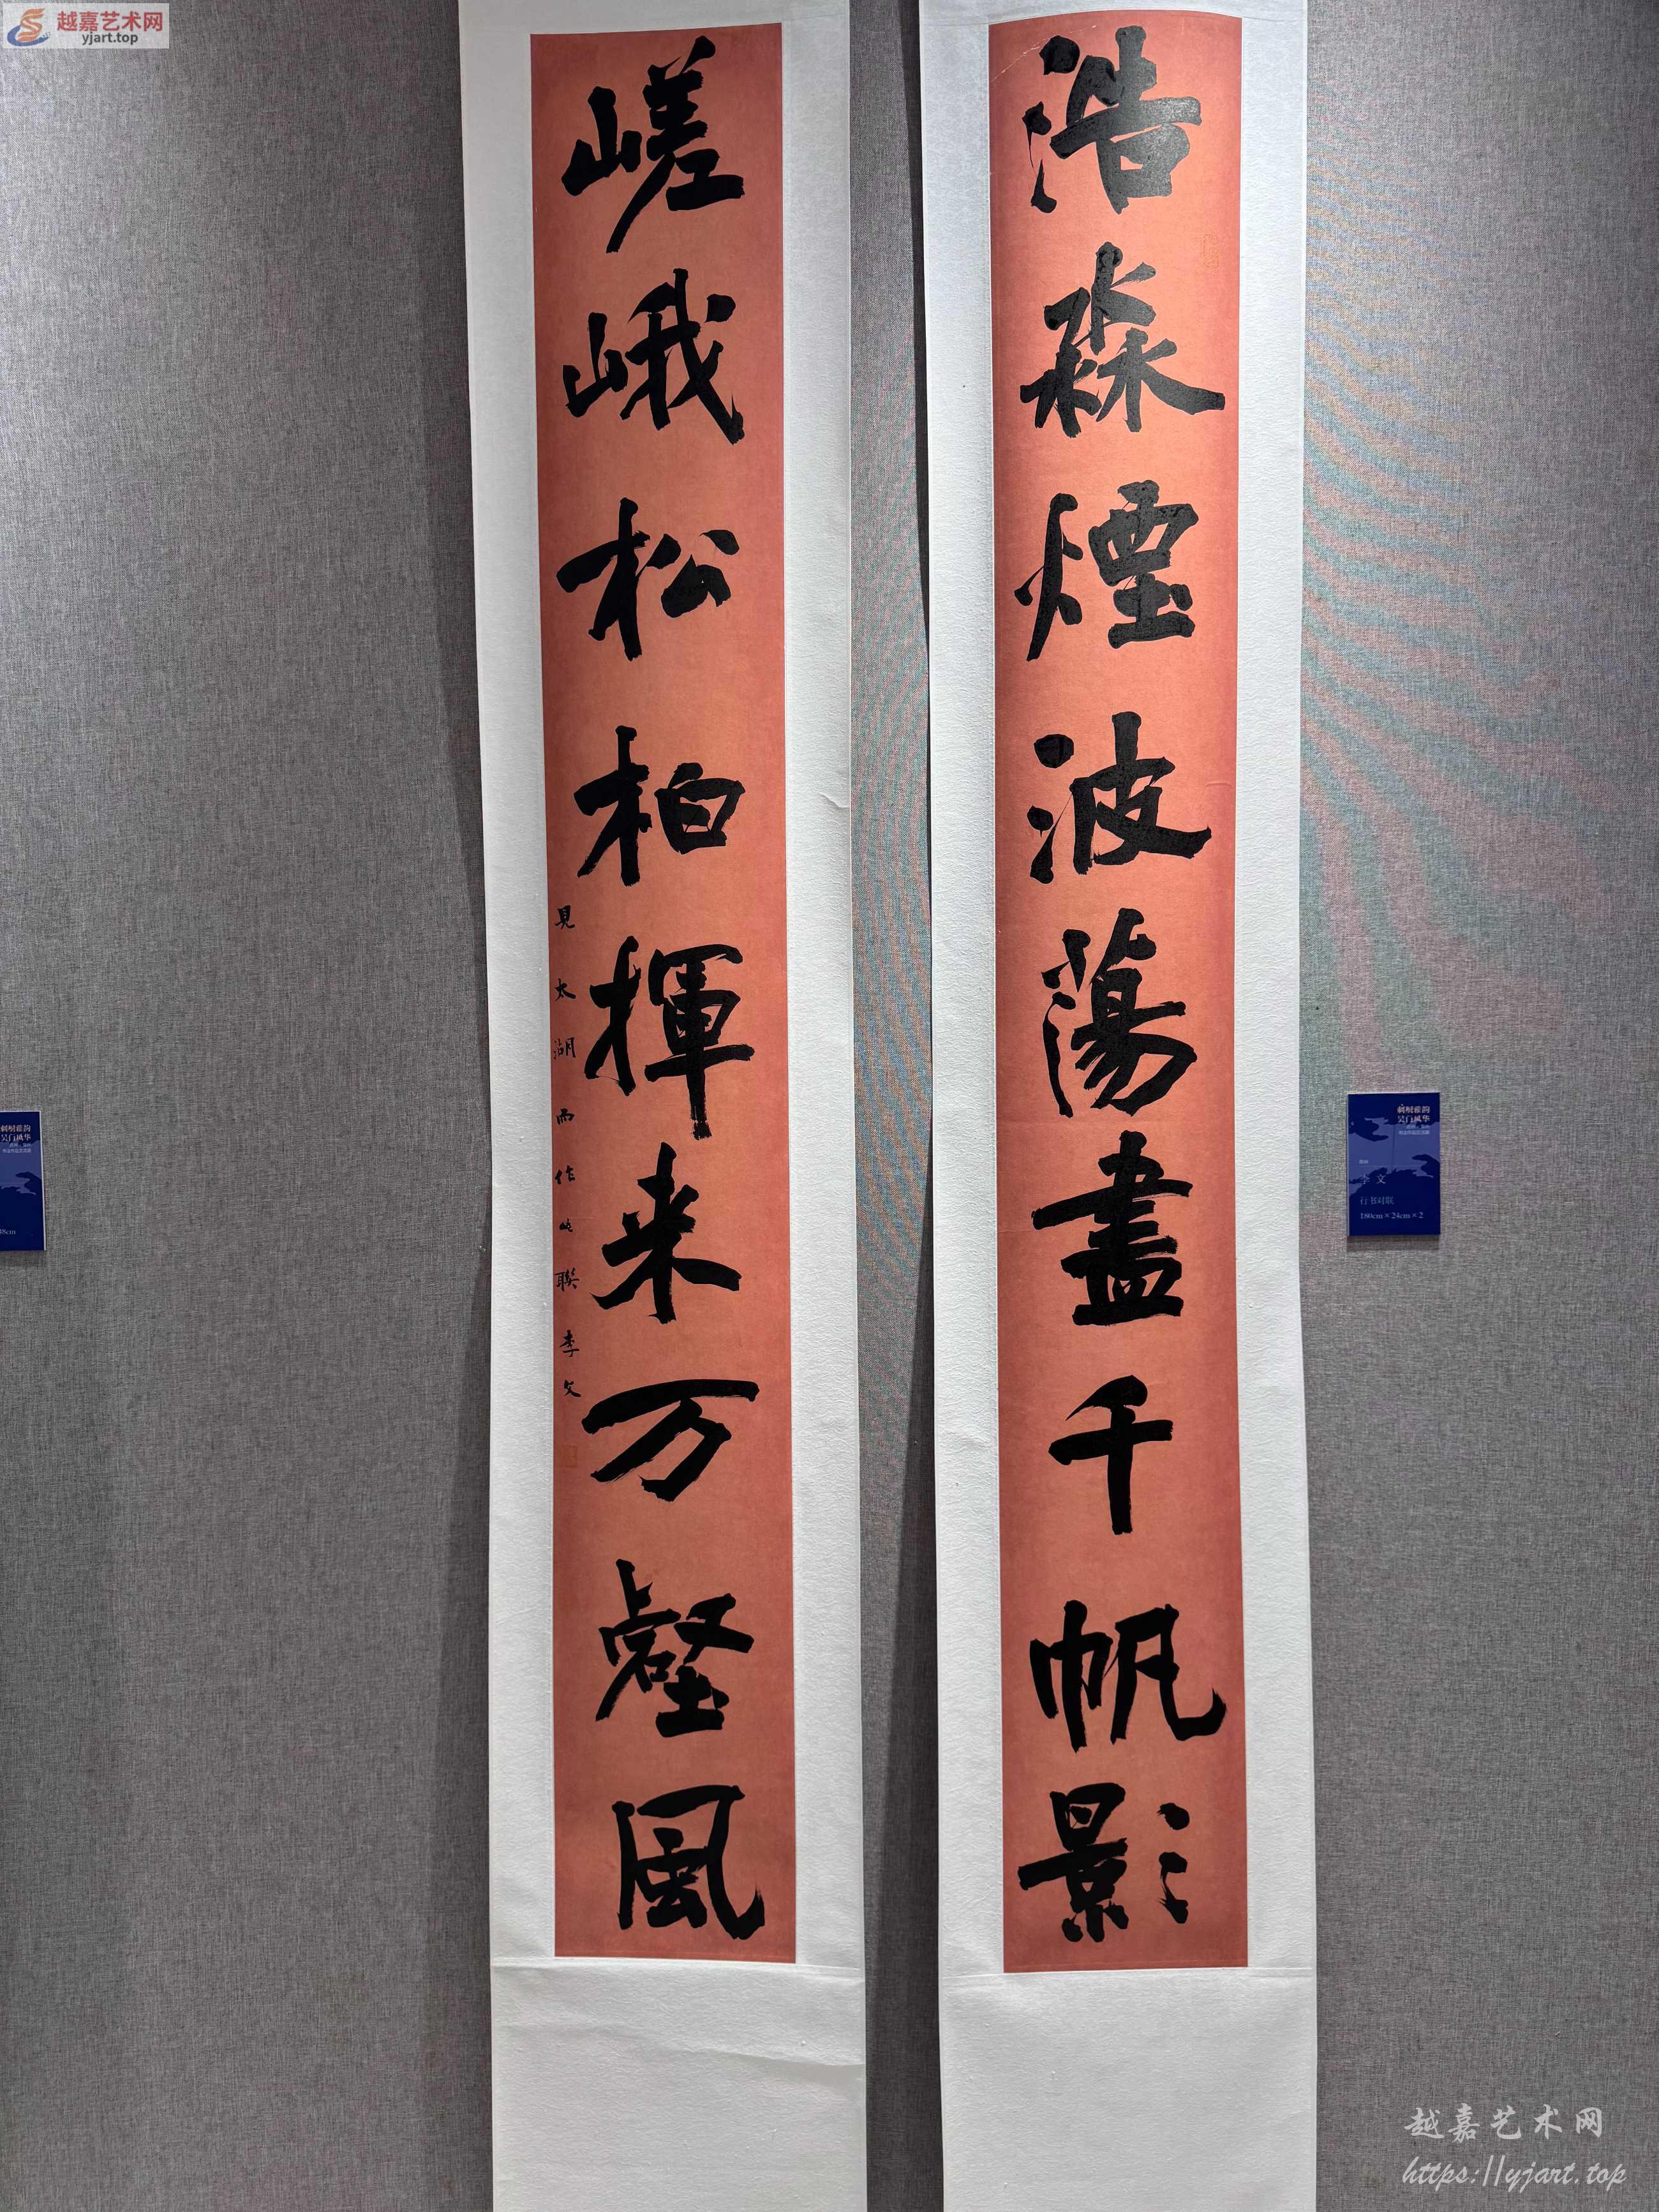 越嘉艺术网
yjart.top
浩淼煙波蕩盡千帆影
嵯峨松柏揮来万壑風
見太湖而作此聯李文
剡炽雅韵
吴门风华
李文
行书对联
180cm×24cm×2
8cm
越嘉艺术网
https://yjart.top